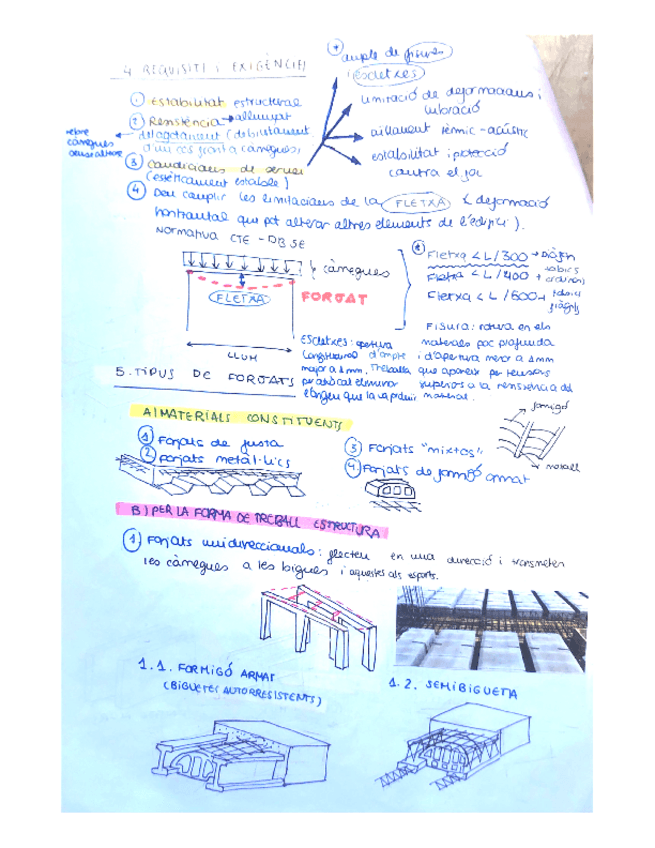 4 REQUISITS I EXIGÈNCIES
* ample de fisures
i esclétxes
limitació de deformacions i
vibració
aïllament tèrmic-acústic
estabilitat i protecció
contra el foc
1 Estabilitat estructural
2 Resistència → allunyat
del agotament (debilitament
d'un cos front a càrregues)
rebre
càrregues
sense
3 Condicions de servei
(estèticament estable)
4 Deu complir les limitacions de la FLETXA (deformació
horitzontal que pot alterar altres elements de l'edifici).
Normativa CTE - DB SE
càrregues
FLETXA
FORJAT
LLUM
* Fletxa < L/300
Fletxa < L/400
Fletxa < L/500
FISURA: rotura en els
materials poc profunda
i d'apertura menor a 1mm
que apareix per tensions
superiors a la resistència del
material.
ESCLETXES: apertura
longitudinal d'ample
major a 1mm. Treballa
per a tal eliminar
l'origen que la va produir
5. TIPUS DE FORJATS
A) MATERIALS CONSTITUENTS
1 Forjats de fusta
2 Forjats metàl·lics
3 Forjats "mixtos"
4. Forjats de formigó armat
formigó
B) PER LA FORMA DE TREBALL ESTRUCTURA
1 Forjats unidireccionals: flecten en una direcció i transmeten
les càrregues a les bigues i aquestes als soports.
1.1. FORMIGÓ ARMAT
(BIGUETES AUTORRESISTENTS)
1.2. SEMIBIGUETA